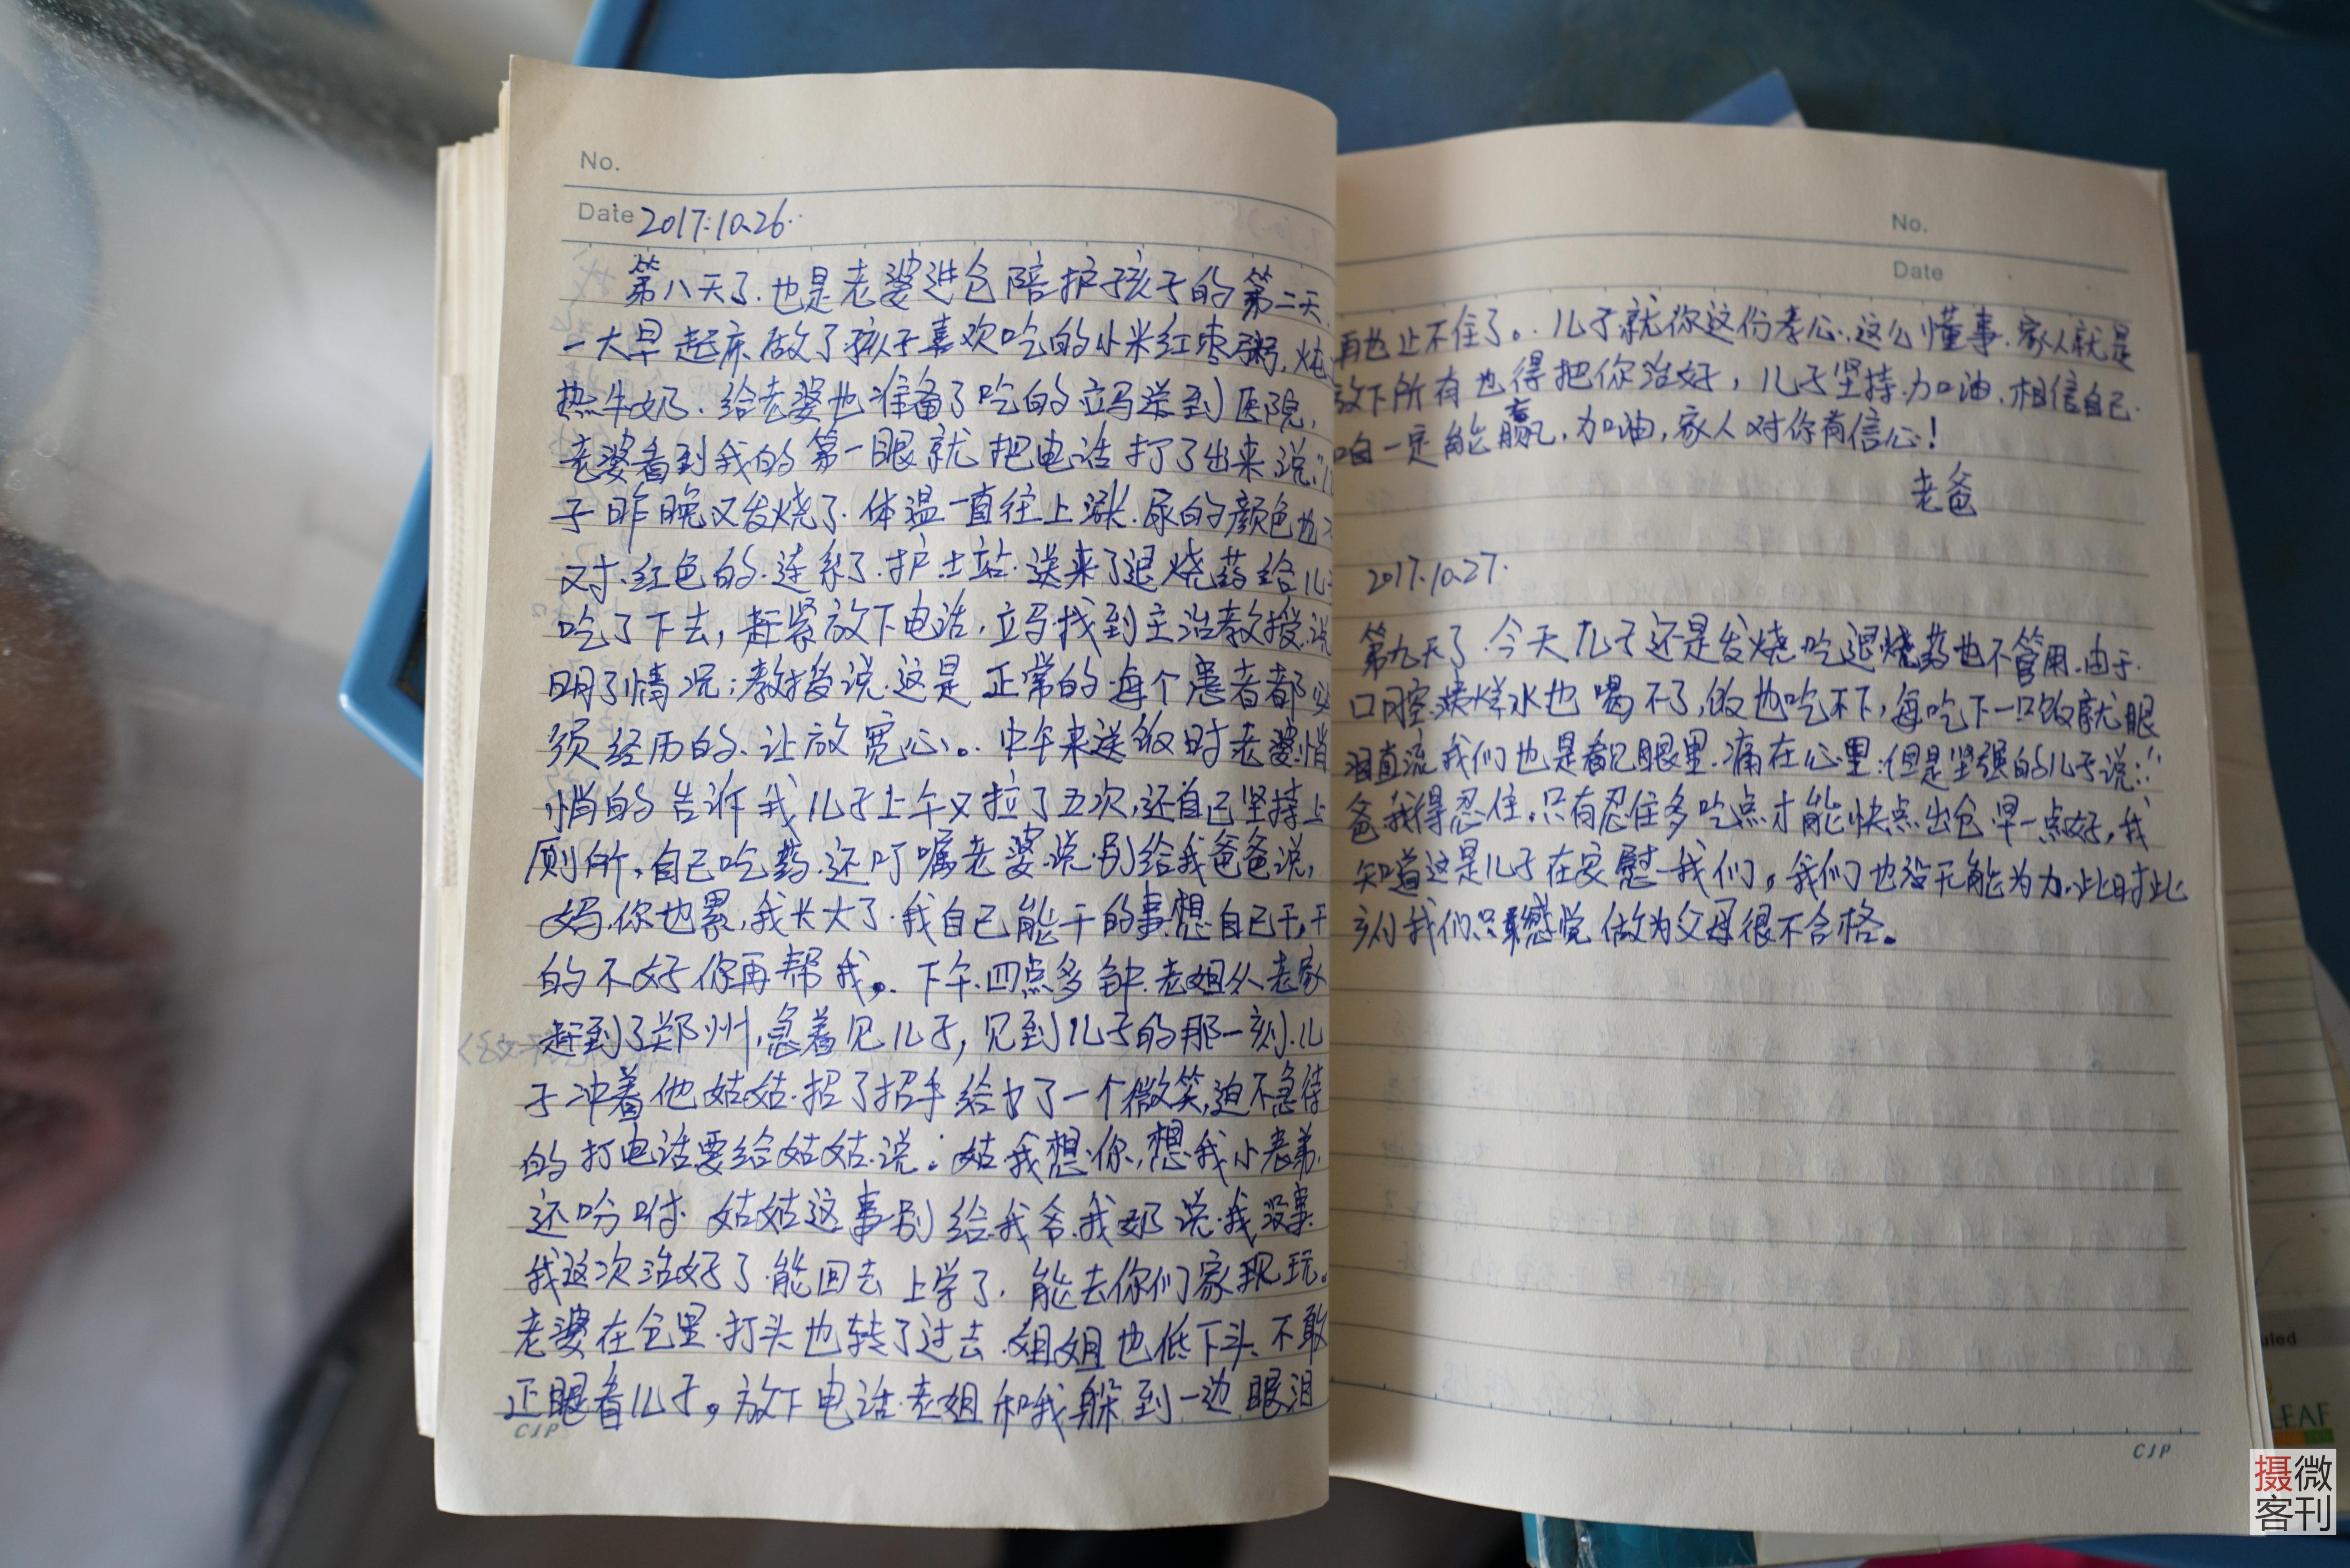 No.
Date 2017.10.26.
第八天了.也是老婆进仓陪护孩子的第二天.
一大早起床做了孩子喜欢吃的小米红枣粥,炖
热牛奶.给老婆也准备了吃的立马送到医院,
老婆看到我的第一眼就把电话打了出来说:“儿
子昨晚又发烧了.体温一直往上涨.尿的颜色也
对.红色的.连系了.护士站.送来了退烧药给儿
吃了下去,赶紧放下电话,立马找到主治教授.说
明了情况;教授说.这是正常的.每个患者都必
须经历的.让放宽心。中午来送饭时老婆悄
悄的告诉我儿子上午又拉了五次,还自己坚持上
厕所,自己吃药.还叮嘱老婆.说.别给我爸爸说,
妈.你也累,我长大了.我自己能干的事想自己干,干
的不好你再帮我。.下午.四点多钟.老姐从老家
赶到了郑州,急着见儿子,见到儿子的那一刻.儿
子冲着他姑姑.招了招手给力了一个微笑,迫不急待
的打电话要给姑姑.说:姑.我想你,想我小老弟.
还吩咐.姑姑这事别给我爷.我奶说.我没事.
我这次治好了.能回去上学了.能去你们家玩.
老婆在仓里.打头也转了过去.姐姐也低下头、不敢
正眼看儿子。放下电话.老姐和我躲到一边眼泪
CJP
No.
Date
再也止不住了。.儿子就你这份孝心.这么懂事.家人就是
放下所有也得把你治好,儿子坚持.加油.相信自己.
咱一定能赢.加油,家人对你有信心!
老爸
2017.10.27.
第九天了.今天儿子还是发烧.吃退烧药也不管用.由于.
口腔溃烂水也喝不了,饭也吃不下,每吃下一口饭就眼
泪直流.我们也是看见眼里.痛在心里.但是坚强的儿子说:“
爸我得忍住.只有忍住多吃点才能快点出仓早一点好,我
知道这是儿子在安慰我们,我们也没无能为力.此时此
刻我们只感觉做为父母很不合格。
CJP
uled
LEAF
摄微
客刊